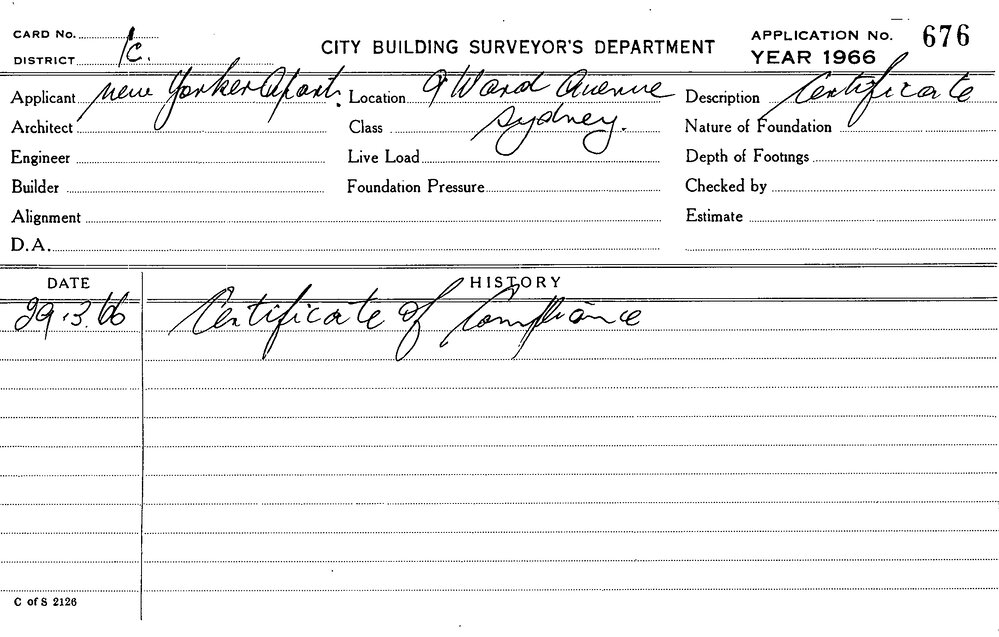 CARD No.
DISTRICT 1c.
CITY BUILDING SURVEYOR'S DEPARTMENT
APPLICATION No. 676
YEAR 1966
Applicant New Yorker Apart. Location 9 Ward Avenue Description Certificate
Architect Class Sydney. Nature of Foundation
Engineer Live Load Depth of Footings
Builder Foundation Pressure Checked by
Alignment Estimate
D.A.
DATE HISTORY
29.3.66 Certificate of Compliance
C of S 2126